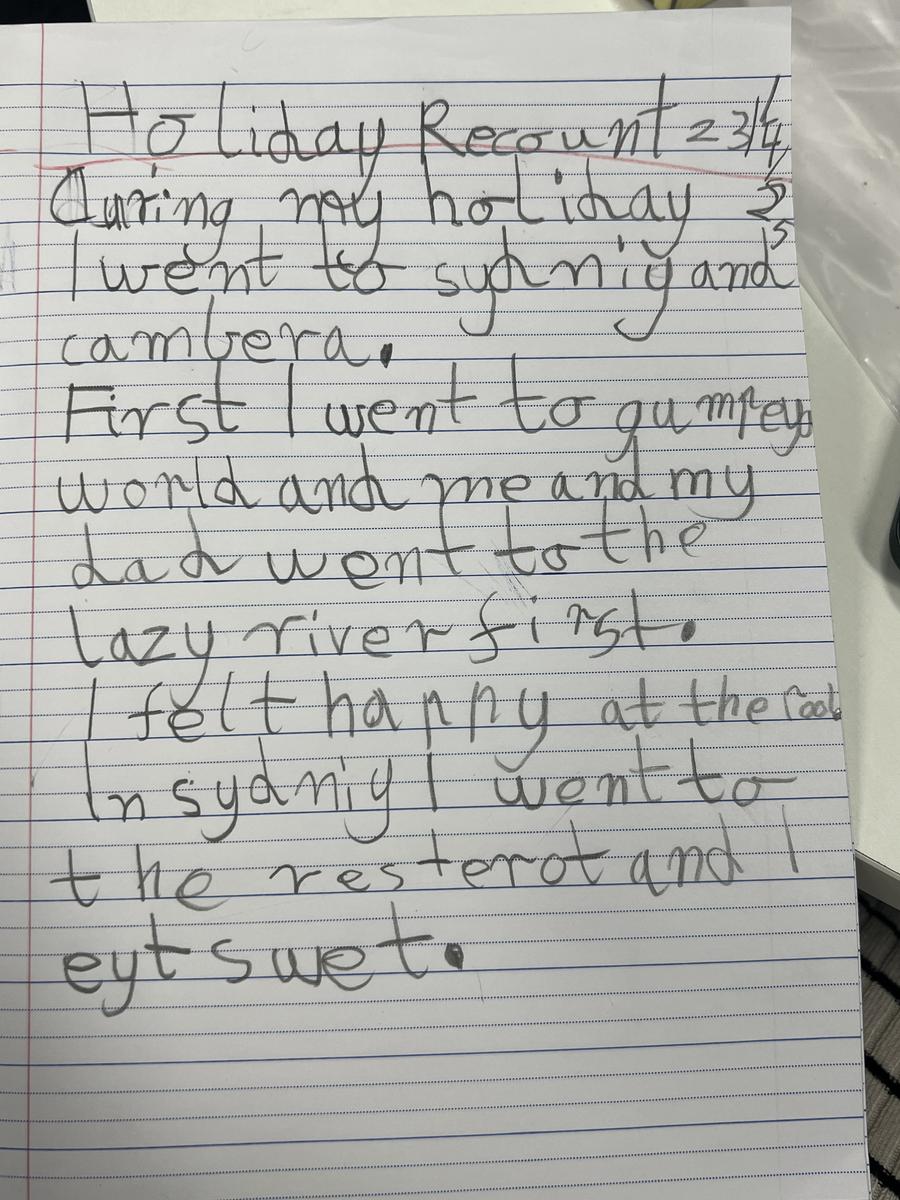 Holiday Recount = 3/4
During my holiday 5
I went to sydniy and 5
cambera.
First I went to gumpey
world and me and my
dad went to the
lazy river first.
I felt happy at the Pool
In sydniy I went to
the resterot and I
eyt swet.